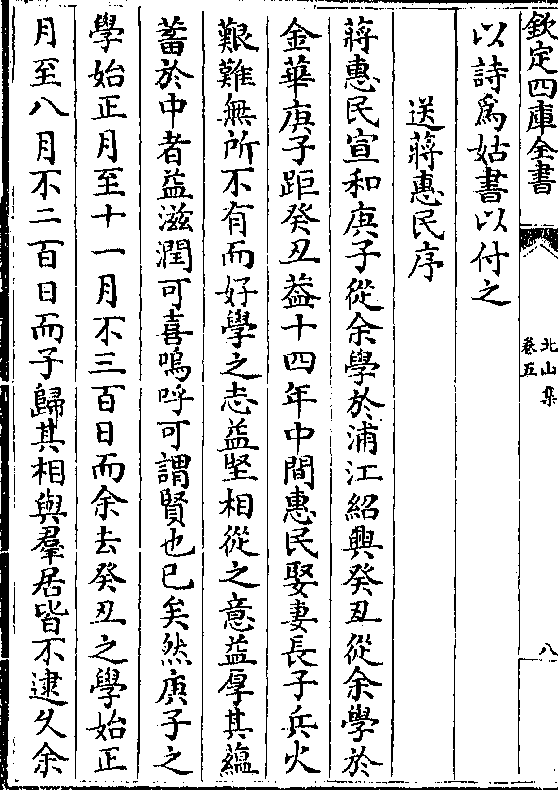 欽定四庫全書
北山集
卷五
八
以詩為姑書以付之
送蔣惠民序
蔣惠民宣和庚子從余學於浦江紹興癸丑從余學於
金華庚子距癸丑葢十四年中間惠民娶妻長子兵火
艱難無所不有而好學之志益堅相從之意益厚其蘊
蓄於中者益滋潤可喜嗚呼可謂賢也已矣然庚子之
學始正月至十一月不三百日而余去癸丑之學始正
月至八月不二百日而子歸其相與羣居皆不逮久余